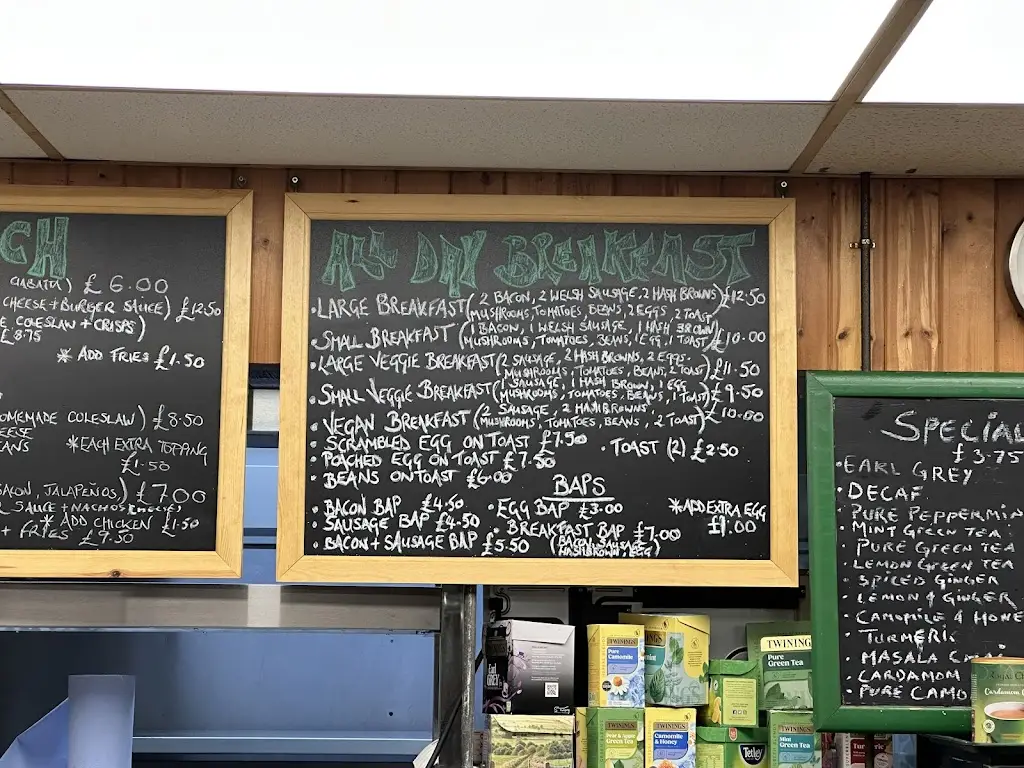 CH
CIABATTA) £6.00
CHEESE + BURGER SAUCE) £12.50
COLESLAW + CRISPS)
£8.75
* ADD FRIES £1.50
OMEMADE COLESLAW) £8.50
EESE
EANS * EACH EXTRA TOPPING
£1.50
BACON, JALAPEÑOS) £7.00
SAUCE + NACHOS CHEESE)
* ADD CHICKEN £1.50
+ FRIES £9.50
ALL DAY BREAKFAST
· LARGE BREAKFAST (2 BACON, 2 WELSH SAUSAGE, 2 HASH BROWNS) £12.50
MUSHROOMS, TOMATOES, BEANS, 2 EGGS, 2 TOAST
· SMALL BREAKFAST (1 BACON, 1 WELSH SAUSAGE, 1 HASH BROWN) £10.00
MUSHROOMS, TOMATOES, BEANS, 1 EGG, 1 TOAST
· LARGE VEGGIE BREAKFAST (2 SAUSAGE, 2 HASH BROWNS, 2 EGGS. £11.50
MUSHROOMS, TOMATOES, BEANS, 2 TOAST)
· SMALL VEGGIE BREAKFAST (1 SAUSAGE, 1 HASH BROWN, 1 EGG £9.50
MUSHROOMS, TOMATOES, BEANS, 1 TOAST)
· VEGAN BREAKFAST (2 SAUSAGE, 2 HASH BROWNS, £10.00
MUSHROOMS, TOMATOES, BEANS, 2 TOAST)
· SCRAMBLED EGG ON TOAST £7.50 · TOAST (2) £2.50
· POACHED EGG ON TOAST £7.50
· BEANS ON TOAST £6.00
BAPS
· BACON BAP £4.50 · EGG BAP £3.00 * ADD EXTRA EGG
£1.00
· SAUSAGE BAP £4.50 · BREAKFAST BAP £7.00
· BACON + SAUSAGE BAP £5.50 (BACON, SAUSAGE
HASHBROWN, EGG)
SPECIAL
£3.75
· EARL GREY
· DECAF
· PURE PEPPERMIN
· MINT GREEN TEA
· PURE GREEN TEA
· LEMON GREEN TEA
· SPICED GINGER
· LEMON & GINGER
· CAMOMILE & HONE
· TURMERIC
· MASALA CHAI
· CARDAMOM
· PURE CAMO
TWININGS
Pure
Camomile
TWININGS
Pure
Green Tea
TWININGS
Pear & Apple
Green Tea
TWININGS
Camomile
& Honey
Tetley
TWININGS
Mint
Green Tea
Cardamom